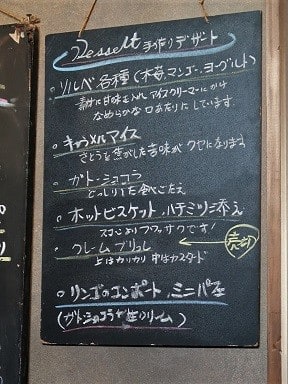 Dessert 手作りデザート
ソルベ各種(木苺、マンゴー、ヨーグルト)
素材に甘味を入れアイスクリーマーにかけ
なめらかな口あたりにしています
キャラメルアイス
さとうを焦がした苦味がクセになります
ガトーショコラ
どっしりした食べごたえ
ホットビスケット、ハチミツ添え
スコーンよりフワサクです!
クレームブリュレ
上はカリカリ 中はカスタード
リンゴのコンポート、ミニパフェ
(ガトーショコラや生クリーム)